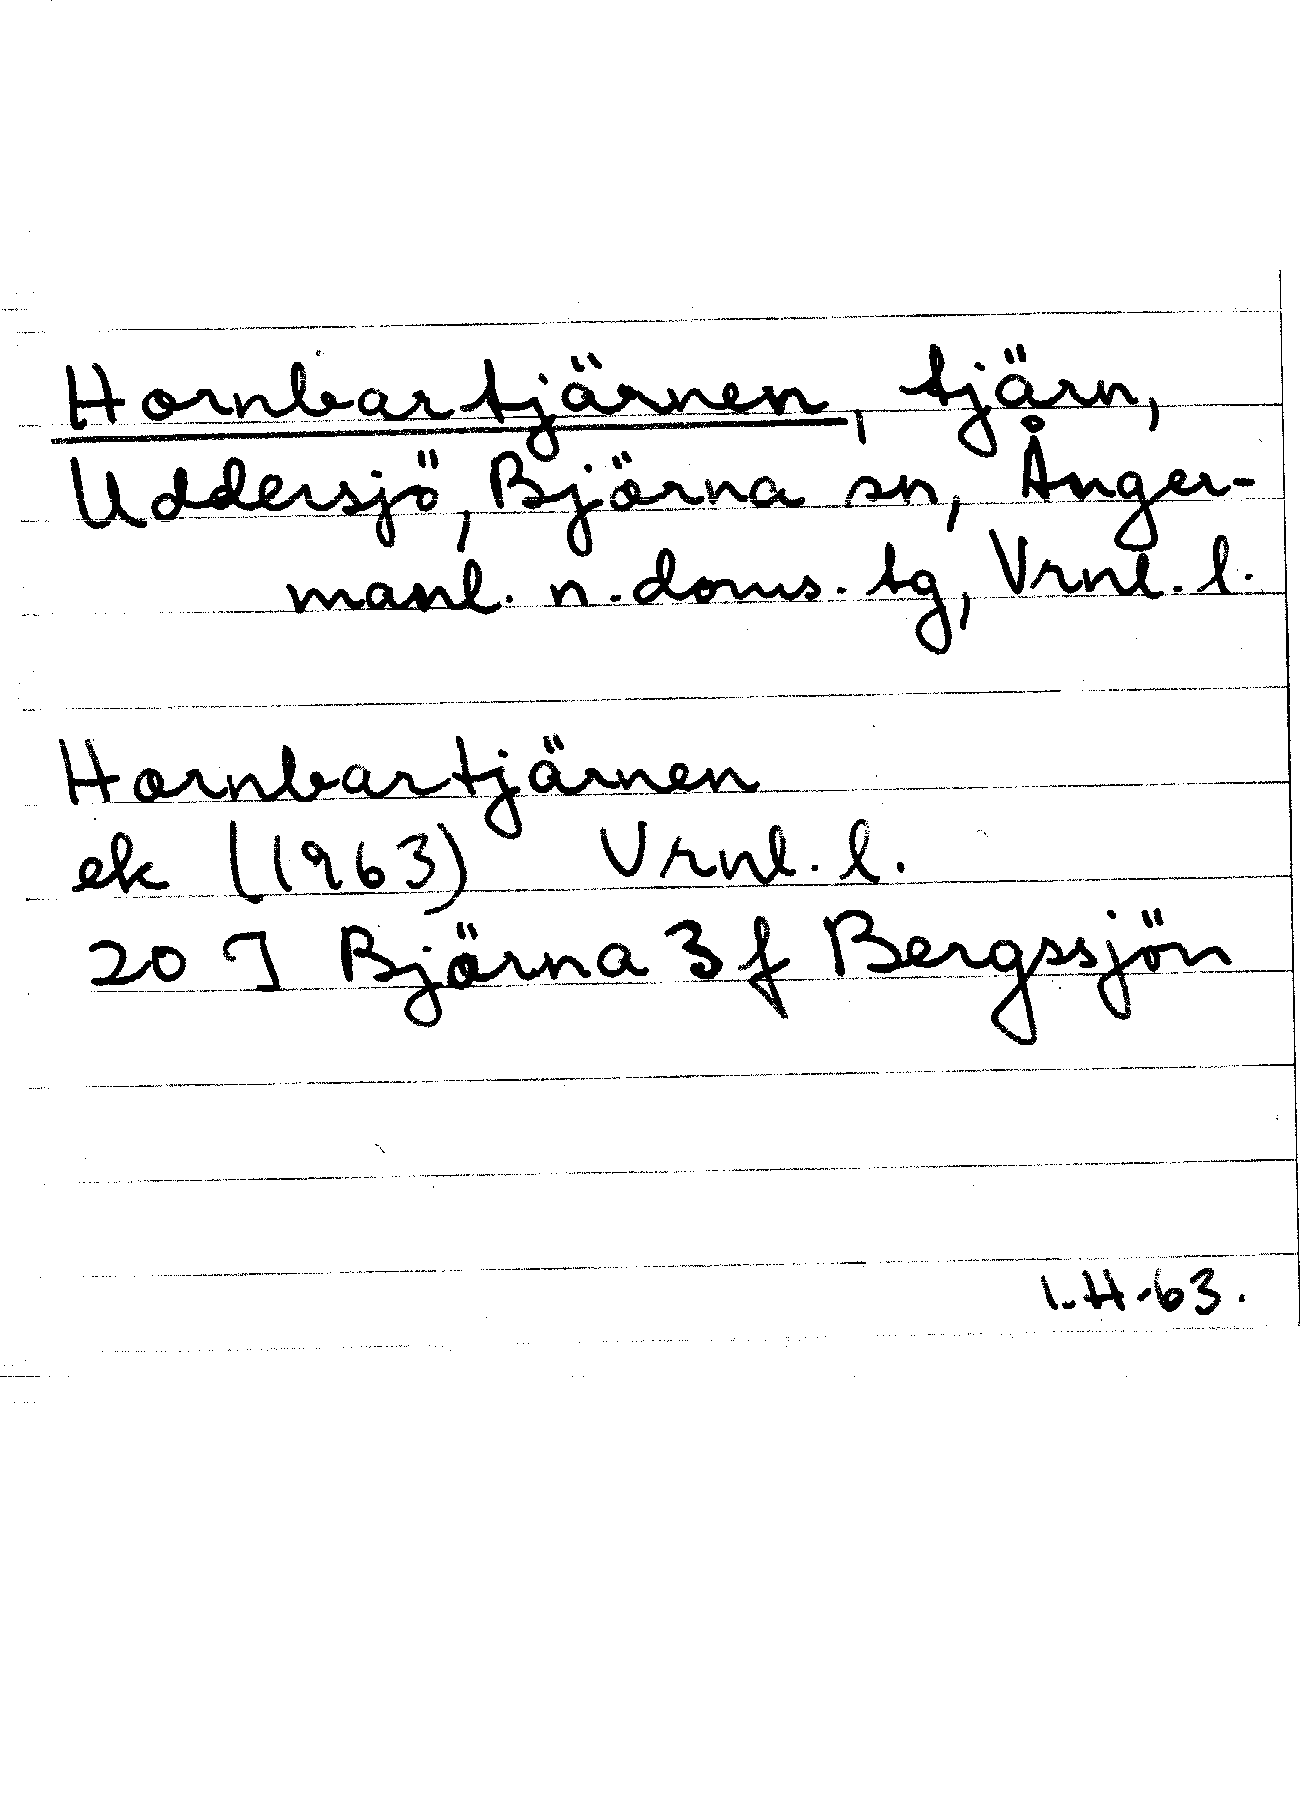 Hornbartjärnen, tjärn,
Uddersjö, Björna sn, Ånger-
manl. n. doms. tg, Vrnl. l.
Hornbartjärnen
ek (1963) Vrnl. l.
20 J Björna 3 f Bergssjön
I.H-63.